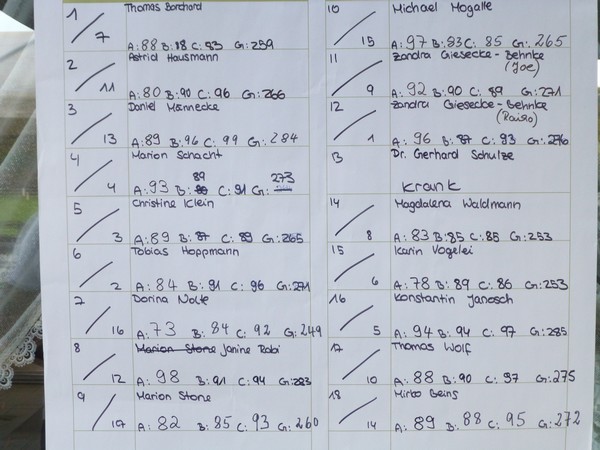 1 / 7
Thomas Borchard
A: 88 B: 88 C: 83 G: 259
2 / 11
Astrid Hausmann
A: 80 B: 90 C: 96 G: 266
3 / 13
Daniel Mennecke
A: 89 B: 96 C: 99 G: 284
4 / 4
Marion Schacht
A: 93 B: 89 C: 91 G: 273
5 / 3
Christine Klein
A: 89 B: 87 C: 89 G: 265
6 / 2
Tobias Hoppmann
A: 84 B: 91 C: 96 G: 271
7 / 16
Dorina Nolte
A: 73 B: 84 C: 92 G: 249
8 / 12
Marion Stone Janine Rabi
A: 98 B: 91 C: 94 G: 283
9 / 17
Marion Stone
A: 82 B: 85 C: 93 G: 260
10 / 15
Michael Mogalle
A: 97 B: 83 C: 85 G: 265
11 / 9
Zandra Giesecke-Behnke
(Joe)
A: 92 B: 90 C: 89 G: 271
12 / 1
Zandra Giesecke-Behnke
A: 96 B: 87 C: 93 G: 276
13
Dr. Gerhard Schulze
Krank
14 / 8
Magdalena Waldmann
A: 83 B: 85 C: 85 G: 253
15 / 6
Karin Vogelei
A: 78 B: 89 C: 86 G: 253
16 / 5
Konstantin Janosch
A: 94 B: 94 C: 97 G: 285
17 / 10
Thomas Wolf
A: 88 B: 90 C: 97 G: 275
18 / 14
Mirko Geins
A: 89 B: 88 C: 95 G: 272